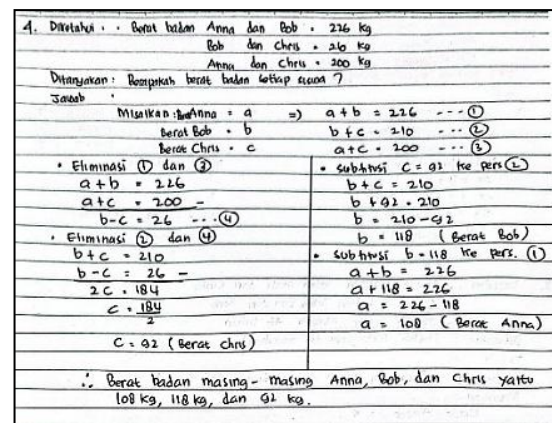 4. Diketahui : . Berat badan Anna dan Bob = 226 kg
Bob dan Chris = 210 kg
Anna dan Chris = 200 kg
Ditanyakan : Berapakah berat badan setiap siswa ?
Jawab :
Misalkan : Anna = a => a + b = 226 --- ①
Berat Bob = b b + c = 210 --- ②
Berat Chris = c a + c = 200 --- ③
• Eliminasi ① dan ③
a + b = 226
a + c = 200 -
b - c = 26 --- ④
• Eliminasi ② dan ④
b + c = 210
b - c = 26 -
2c = 184
c = 184
2
C = 92 ( Berat chris )
• subtitusi c = 92 ke pers ②
b + c = 210
b + 92 = 210
b = 210 - 92
b = 118 ( Berat Bob )
• subtitusi b = 118 ke pers. ①
a + b = 226
a + 118 = 226
a = 226 - 118
a = 108 ( Berat Anna )
∴ Berat badan masing - masing Anna, Bob, dan Chris yaitu
108 kg, 118 kg, dan 92 kg.